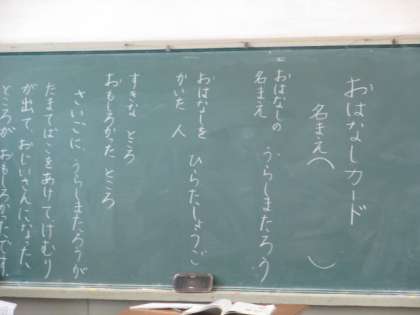 おはなしカード
名まえ（　　　）
おはなしの
名まえ　うらしまたろう
おはなしを
かいた 人　ひらたしょうご
すきな ところ
おもしろかった ところ
さいごに、うらしまたろうが
たまてばこをあけてけむり
が出て、おじいさんになった
ところが おもしろかったです。